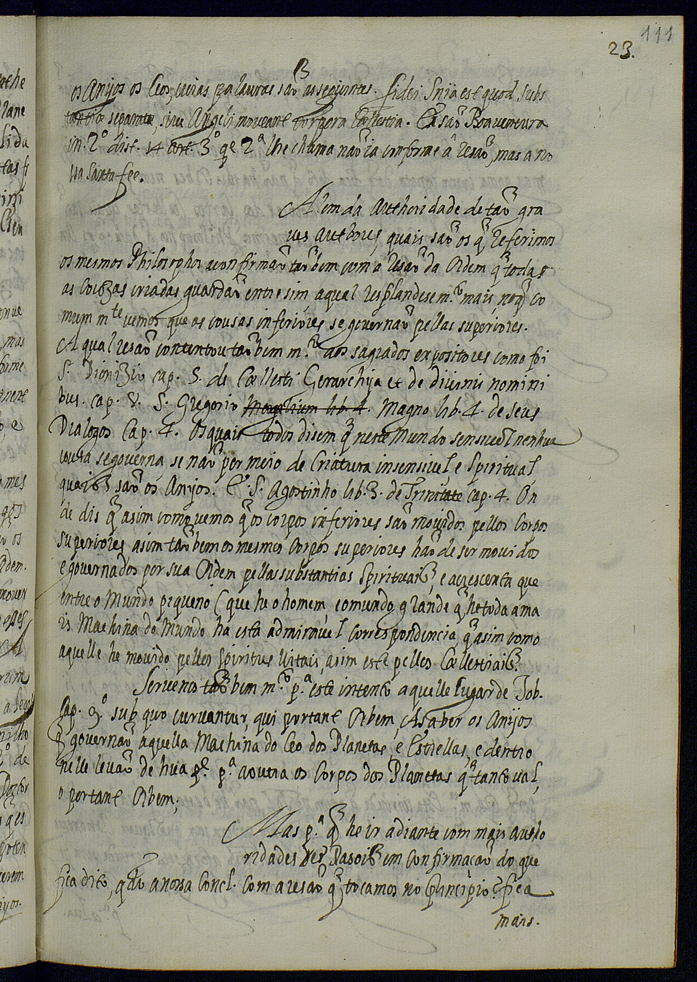 111
23.
os Anjos os Ceos, cuias palauras saõ as seguintes. fidei Snīa est quod subs
tantia separata, siue Angeli moueant corpora Cœlestia. E saõ Boauentura
in 2º dist. 14 art. 3º qē. 2ª lhe chama naõ ia conforme â resaõ, mas a no
ssa santa fee.
Alem da Authoridade de taõ gra
ues Authores, quais saõ os q̃ referimos
os mesmos Philosophos confirmaõ taõbem com a resaõ da Ordem q̃ todas
as Couzas criadas guardaõ entre sim a qual resplandese mᵗᵒ mais no q̃ co
mum mᵗᵉ uemos que as cousas inferiores se gouernaõ pellas superiores.
A qual resaõ contentou taõbem mᵗᵒ aos sagrados expositores como foi
S. Dionizio cap. 5. de Cœllesti Gerarchija et de diuinis nomini
bus. cap. S. Gregorio Magno lib. 4. de seus
Dialogos Cap. 4. Os quais todos disem q̃ neste Mundo sensiuel nenhua
couza se gouerna se naõ por meio de Criatura insensiuel e Spiritual
quais saõ os Anjos. E S. Agostinho lib. 3. de Trinitate cap. 4. On
de dis q̃ asim como uemos q̃ os corpos inferiores saõ mouidos pellos Corpos
superiores asim taõbem os mesmos Corpos superiores haõ de ser mouidos
e gouernados por sua Ordem pellas substantias Spirituais, e acrescenta que
entre o Mundo piqueno (que he o homem e o mundo grande q̃ he toda a ma
is Machina do Mundo ha esta admirauel correspondencia q̃ asim como
aquelle he mouido pellos Spiritus Uitais asim este pelles Cœllestiais.
Seruenos taõbem mᵗᵒ pª este intento aquelle lugar de Job.
Cap. 9º sub quo curuantur, qui portant Orbem, A saber os Anjos
q̃ gouernaõ aquella Machina do Ceo dos Planetas, e Estrellas, e dentro
nelle leuaõ de hũa pᵗᵉ pª a outra os Corpos dos Planetas q̃ tanto ual,
o portant Orbem;
Mas pª q̃ he ir adiante com mais autho
ridades, e Rasois em confirmaçaõ do que
fica dito, a nossa Concl. com a resaõ q̃ tocamos no principio fica
mais.